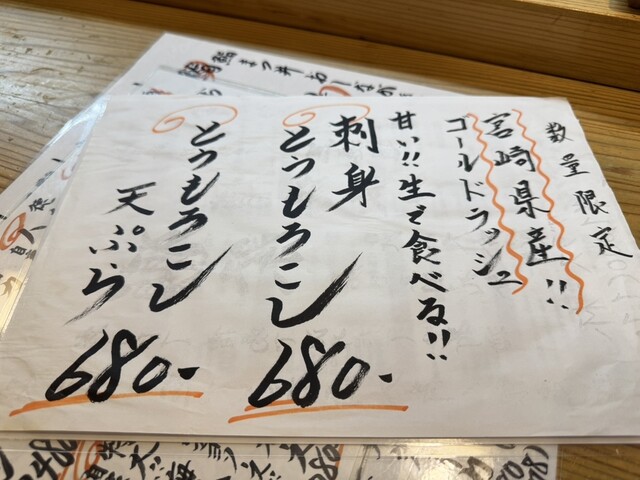 数量限定
宮崎県産!!
ゴールドラッシュ
甘い!!生で食べる!!
刺身
とうもろこし
680-
とうもろこし
天ぷら
680-